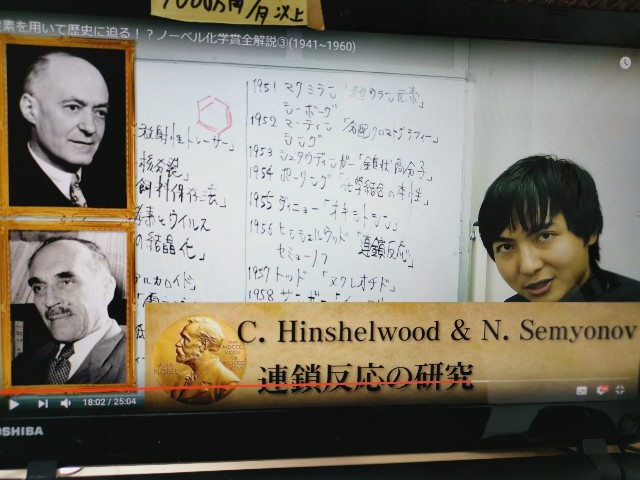 1000万円/月以上
素を用いて歴史に迫る！？ノーベル化学賞全解説③(1941~1960)
放射性トレーサー」
核分裂」
飼料保存法」
酵素とウイルス
の結晶化」
アルカロイド」
1951 マクミラン「超ウラン元素」
シーボーグ
1952 マーティン「分配クロマトグラフィー」
シング
1953 シュタウディンガー「鎖状高分子」
1954 ポーリング「化学結合の本性」
1955 ヴィニョー「オキシトシン」
1956 ヒンシェルウッド「連鎖反応」
セミョーノフ
1957 トッド「ヌクレオチド」
1958 サンガー
C. Hinshelwood & N. Semyonov
連鎖反応の研究
18:02 / 25:04
OSHIBA